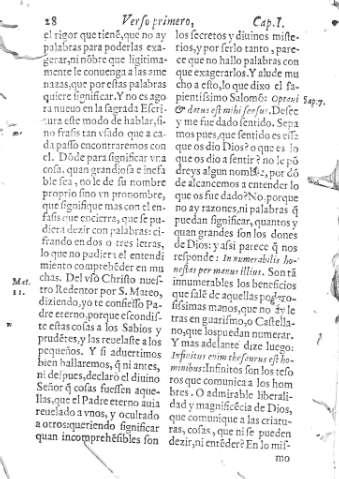 28 Verso primero, Cap. I.
el rigor que tienē, que no ay
palabras para poderlas exa-
gerar, ni nōbre que ligitima-
mente le conuenga a las ame
nazas, que por estas palabras
quiere significar. Y no es ago
ra nueuo en la sagrada Escri
tura este modo de hablar, si-
no frasis tan vsado que a ca-
da passo encontraremos con
el. Dōde para significar vna
cosa, quan grandiosa e inefa
ble sea, no le de su nombre
proprio sino vn pronombre,
que significa mas con el en-
fasis que encierra, que se pu-
diera dezir con palabras: ci-
frando en dos o tres letras,
lo que no pudiera el entendi
miento comprehēder en mu
chas. Del vsò Christo nues-
tro Redentor por S. Mateo,
diziendo, yo te confiesso Pa-
dre eterno, porque escondis-
te estas cosas a los Sabios y
prudētes, y las reuelaste a los
pequeños. Y si aduertimos
bien hallaremos, q̄ ni antes,
ni despues, declarò el diuino
Señor q̄ cosas fuessen aque-
llas, que el Padre eterno auia
reuelado a vnos, y ocultado
a otros: queriendo significar
quan incomprehēsibles son
Mat.
11.
los secretos y diuinos miste-
rios, y por serlo tanto, pare-
ce que no hallo palabras con
que exagerarlos. Y alude mu
cho a esto, lo que dixo el sa-
pientissimo Salomō: Optaui
& datus est mihi sensus. Desee
y me fue dado sentido. Sepa
mos pues, que sentido es esse
que os dio Dios? o que es lo
que os dio a sentir? no le pō
dreys algun nombre, por dō
de alcancemos a entender lo
que os fue dado? No, porque
no ay razones, ni palabras q̄
puedan significar, quantos y
quan grandes son los dones
de Dios: y assi parece q̄ nos
responde: In numerabilis ho-
nestas per manus illius. Son tā
innumerables los beneficios
que salē de aquellas podero-
sissimas manos, que no ay le
tras en guarismo, o Castella-
no, que los puedan numerar.
Y mas adelante dize luego:
Infinitus enim thesaurus est ho-
minibus: Infinitos son los teso
ros que comunica a los hom
bres. O admirable liberali-
dad y magnificēcia de Dios,
que comunique a las criatu-
ras, cosas, que ni se pueden
dezir, ni entēder? En lo mis-
mo
Sap. 7.